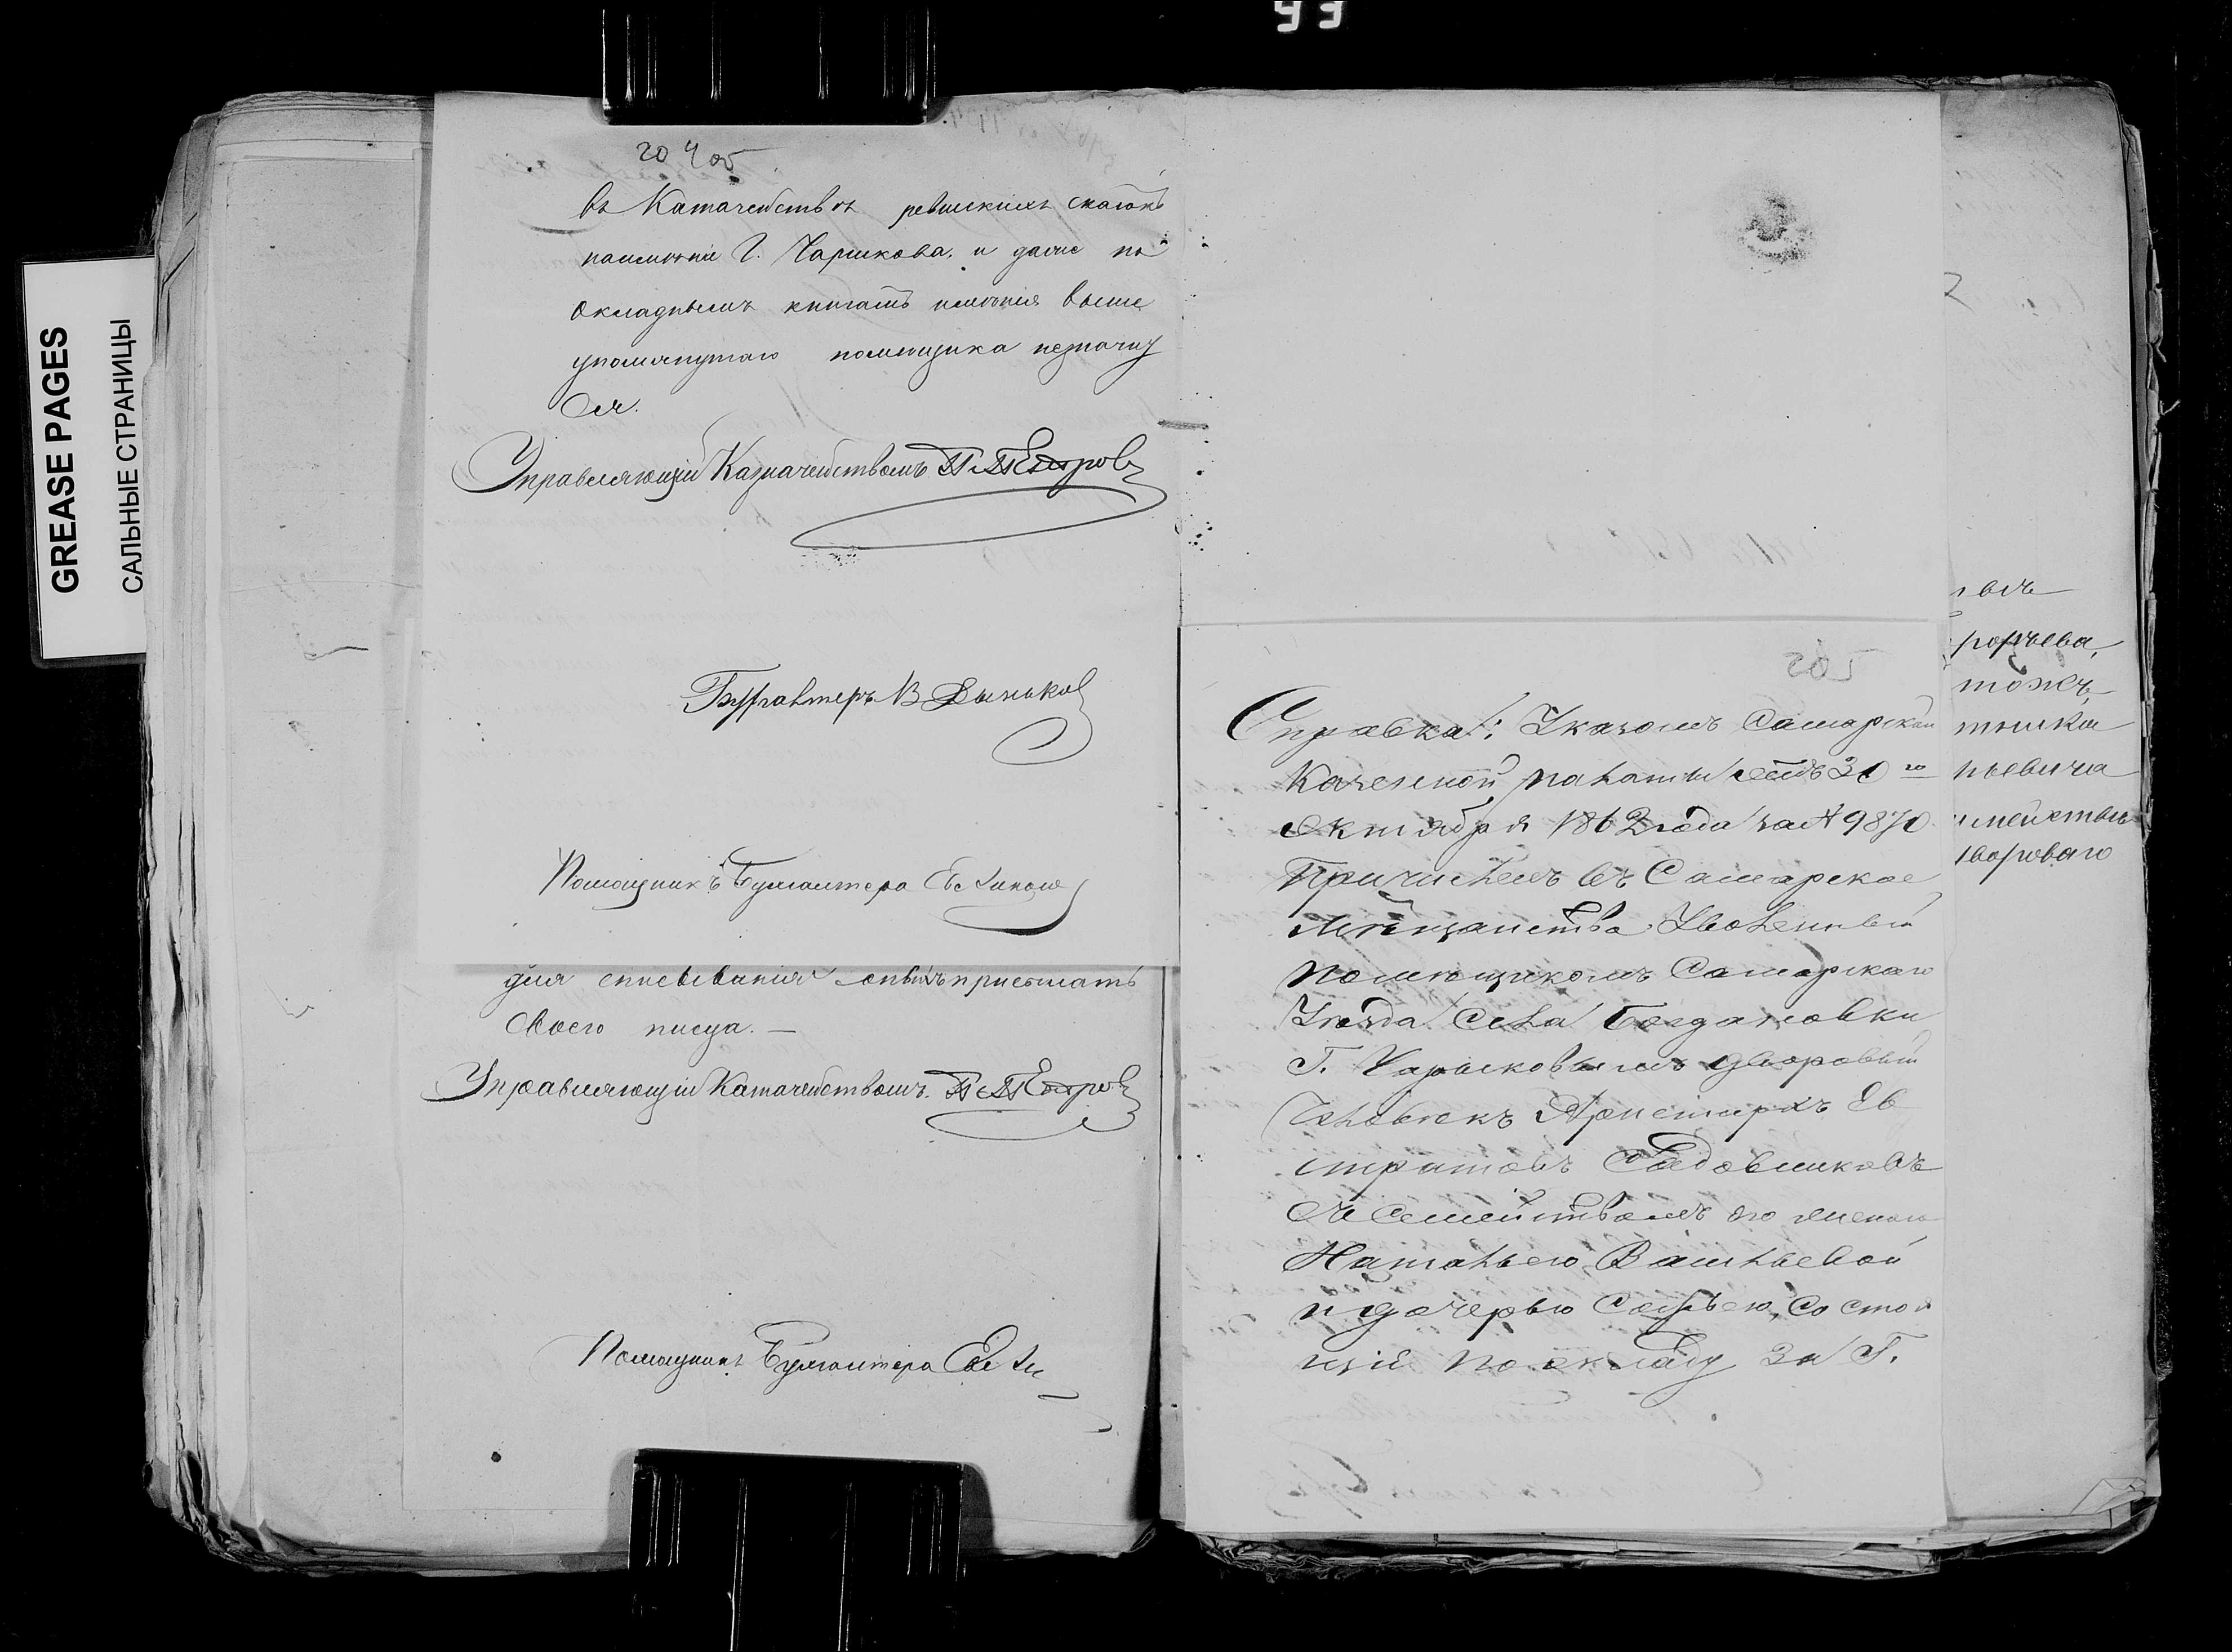 93
GREASE PAGES
САЛЬНЫЕ СТРАНИЦЫ
204об
въ Казначействѣ ревизскихъ сказокъ
наимѣніе Г. Чарыкова. и далѣе по
окладнымъ книгамъ имѣнія выше
упомянутаго помѣщика незначит
ся.
Управляющій Казначействомъ П. Петровъ
Бухгалтеръ В
Помощникъ Бухгалтера
для списыванія оныхъ присылать
своего писца. —
Управляющій Казначействомъ. П. Петровъ
Помощникъ Бухгалтера
205
Справка: Указомъ Самарской
Казенной палаты отъ 30го
октября 1862 года за № 9870
Причисленъ въ Самарское
Мѣщанство Уволенный
помѣщикомъ Самарскаго
Уѣзда Села Богдановки
Г. Чарыковымъ дворовый
Человѣкъ Аристархъ Ев
стратовъ Садовниковъ
Съ Семействомъ его женою
Натальею Васильевой
и дочерью Софьею, Состоя
щій по окладу за Г.
тожъ
ньевича
двороваго